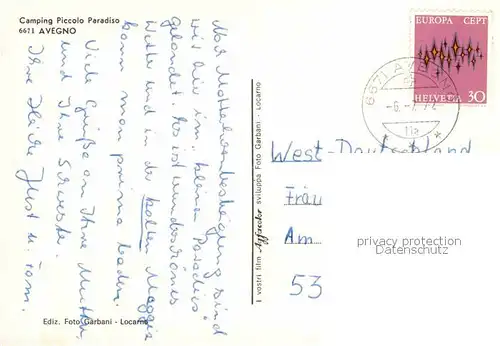 Camping Piccolo Paradiso
6671 AVEGNO
Nach Matterhornbesteigung sind
wir hier im "kleinen Paradies"
gelandet. Es ist wunderschönes
Wetter und in der kalten Maggia
kann man prima baden.
Viele Grüße an Ihre Mutter
und Ihre Schwester.
Ihre Heide Just u. Tom.
Ediz. Foto Garbani - Locarno
I vostri film Agfacolor sviluppa Foto Garbani - Locarno
EUROPA CEPT
HELVETIA 30
6671 AVEGNO
-6.-7.72
11a
West-Deutschland
Frau
Am
53
privacy protection
Datenschutz